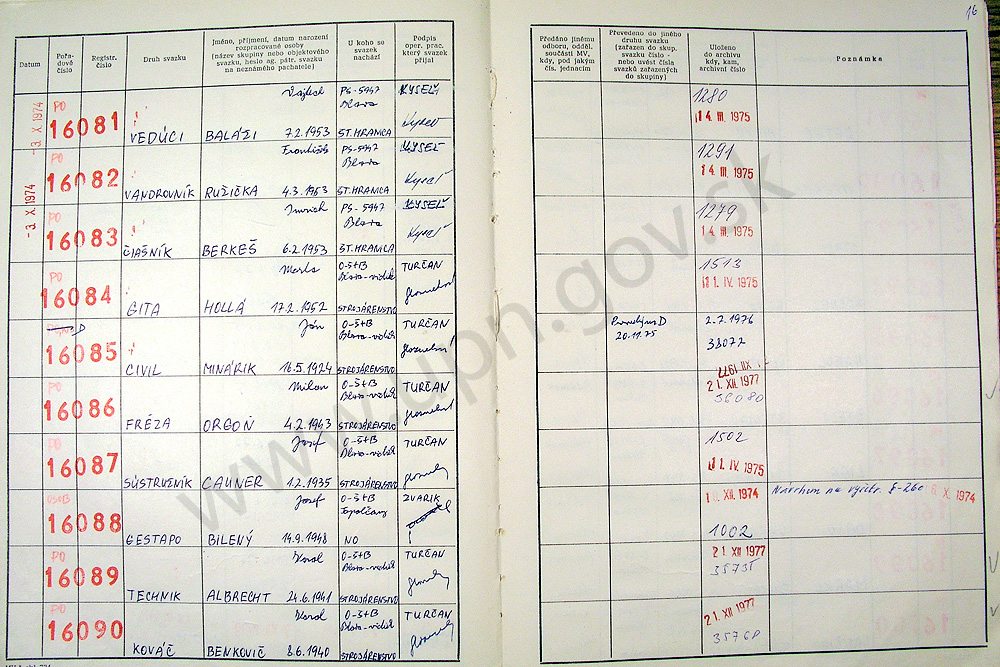 16
Datum
Pořa-
dové
číslo
Registr.
číslo
Druh svazku
Jméno, příjmení, datum narození
rozpracované osoby
(název skupiny nebo objektového
svazku, heslo ag. pátr. svazku
na neznámého pachatele)
U koho se
svazek
nachází
Podpis
oper. prac.
který svazek
přijal
Předáno jinému
odboru, odděl.
součásti MV,
kdy, pod jakým
čís. jednacím
Převedeno do jiného
druhu svazku
(zařazen do skup.
svazku číslo -
nebo uvést čísla
svazků zařazených
do skupiny)
Uloženo
do archivu
kdy, kam,
archivní číslo
Poznámka
-3. X. 1974
PO
16081
VEDÚCI
Vojtech
BALÁŽI 7.2.1953
PS-5947
Blava
ST. HRANICA
KYSEĽ
1280
14. III. 1975
-3. X. 1974
PO
16082
VANDROVNÍK
František
RUŽIČKA 4.3.1953
PS-5947
Blava
ST. HRANICA
KYSEĽ
1291
14. III. 1975
PO
16083
ČIAŠNÍK
Imrich
BERKEŠ 6.2.1953
PS-5947
Blava
ST. HRANICA
KYSEĽ
1279
14. III. 1975
PO
16084
GITA
HOLLÁ 17.2.1952
O-ŠtB
Blava-vidiek
STROJÁRENSTVO
TURČAN
1513
1. IV. 1975
D
16085
CIVIL
Ján
MINÁRIK 16.5.1924
O-ŠtB
Blava-vidiek
STROJÁRENSTVO
TURČAN
D
20.11.75
2.7.1976
38072
PO
16086
FRÉZA
Milan
ORGOŇ 4.2.1943
O-ŠtB
Blava-vidiek
STROJÁRENSTVO
TURČAN
XII 1977
21. XII. 1977
36080
PO
16087
SÚSTRUŽNÍK
Jozef
CAUNER 1.2.1935
O-ŠtB
Blava-vidiek
STROJÁRENSTVO
TURČAN
1502
1. IV. 1975
16088
GESTAPO
Jozef
BILENÝ 14.9.1948
O-ŠtB
Topoľčany
NO
ZVARIK
XII. 1974
1002
Návrhom na
X. 1974
PO
16089
TECHNIK
Karol
ALBRECHT 24.6.1941
O-ŠtB
Blava-vidiek
STROJÁRENSTVO
TURČAN
21. XII 1977
35735
PO
16090
KOVÁČ
Karol
BENKOVIČ 8.6.1940
O-ŠtB
Blava-vidiek
STROJÁRENSTVO
TURČAN
21. XII 1977
www.upn.gov.sk